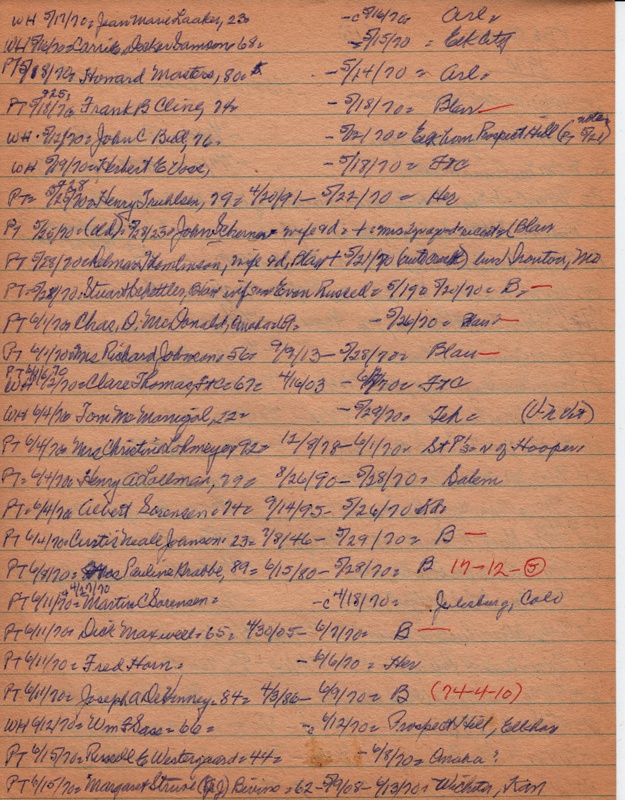 WH 5/17/70 = Jean Marie Laaker, 23 = -c 5/16/70 Arl =
WH 5/16/70 = Carrie Decker Samson = 68 = - 5/15/70 = Elk City
PT 5/18/70 = Howard Masters, 80 = - 5/14/70 = Arl =
PT 5/18/70 = Frank B Cline, 74 = - 5/18/70 = Blair —
WH 5/12/70 = John C Bull, 76 = - 5/2/70 = Elkhorn Prospect Hill (PT 5/21)
WH 5/19/70 = Herbert E Vose, - 5/18/70 = FtC
PT = 5/25/70 = Henry Truhlsen, 79 = 4/20/91 - 5/22/70 = Her
PT 5/25/70 = (old) = 5/28/23 = John wife &d = + = Blair
PT 5/28/70 = Tomlinson, wife &d, Blair + 5/21/70 (auto crash) buri Ironton, Mo
PT = 5/28/70 = Stuart Blair inf son Evan Russell = 5/19 = 5/20/70 = B = —
PT 6/1/70 = Chas. D. McDonald, Omaha = - 5/26/70 = Blair —
PT 6/1/70 = Mrs Richard Johnson = 56 = 9/9/13 - 5/28/70 = Blair —
PT 6/16/70
WH 6/2/70 = Clare Thomas, FtC = 67 = 4/16/03 - /70 = FtC
WH 6/4/70 Tom McManigal, 22 = - 5/29/70 = Tek = (V-n Viet)
PT 6/4/70 = Mrs Christine Lohmeyer, 92 = 12/9/78 - 6/1/70 = St P's = N of Hooper,
PT = 6/4/70 = Henry A Tollman, 79 = 8/26/90 - 5/28/70 = Salem
PT = 6/4/70 = Albert Sorensen = 74 = 9/14/95 - 5/26/70
PT 6/4/70 = Curtis Neale Johnson = 23 = 7/8/46 - 5/29/70 = B —
PT 6/4/70 = Mrs Pauline Grabbe, 89 = 6/15/80 - 5/28/70 = B 17-12-5
4/27/70
PT 6/11/70 = Martin C Sorensen = -c 4/18/70 = Julesburg, Colo
PT 6/11/70 = Dick Maxwell = 65 = 4/30/05 - 6/7/70 = B —
PT 6/11/70 = Fred Horn = - 6/6/70 = Her
PT 6/11/70 = Joseph A DeTenney = 84 = 4/3/86 - 6/9/70 = B (74-4-10)
WH 6/12/70 = Wm F Sass = 66 = -c 6/12/70 = Prospect Hill, Elkhorn
PT 6/15/70 = Russell E Westergaard = 44 = - 6/8/70 = Omaha ?
PT 6/15/70 = Margaret Struve Bivins = 62 - 5/9/08 - 6/13/70 = Wichita, Kan